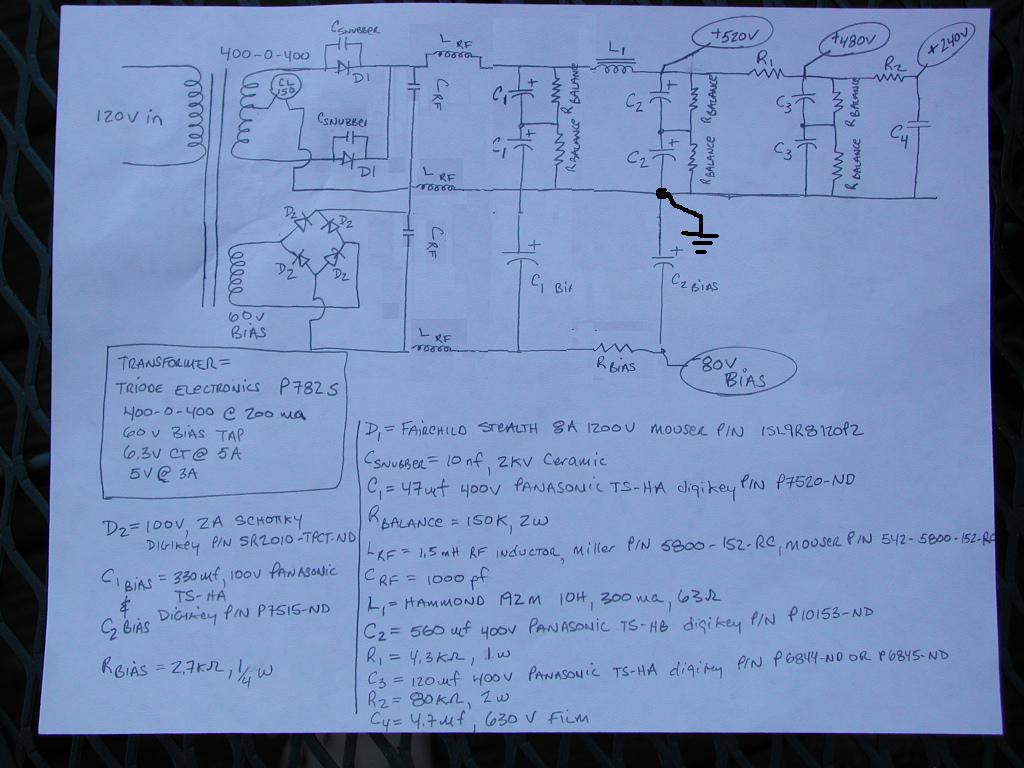 C SNUBBER
400-0-400
D1
L RF
L1
+520V
+480V
+240V
R1
R2
CL 150
120V in
C SNUBBER
D1
C RF
C1
C1
R BALANCE
R BALANCE
C2
C2
R BALANCE
R BALANCE
C3
C3
R BALANCE
R BALANCE
C4
L RF
D2
D2
D2
D2
C RF
C1 Bi
C2 BIAS
60V
BIAS
L RF
R BIAS
-80V
BIAS
TRANSFORMER=
TRIODE ELECTRONICS P782S
400-0-400 @ 200 ma
60V BIAS TAP
6.3V CT @ 5A
5V @ 3A
D2 = 100V, 2A SCHOTKY
DIGIKEY P/N SR2010-TPCT-ND
C1 BIAS = 330uf, 100V PANASONIC
& TS-HA
C2 BIAS DIGIKEY P/N P7515-ND
R BIAS = 2.7KΩ, 1/4 W
D1 = FAIRCHILD STEALTH 8A 1200V MOUSER P/N ISL9R8120P2
C SNUBBER = 10nf, 2KV Ceramic
C1 = 47uf 400V PANASONIC TS-HA digikey P/N P7520-ND
R BALANCE = 150K, 2W
L RF = 1.5mH RF inductor, miller P/N 5800-152-RC, MOUSER P/N 542-5800-152-RC
C RF = 1000pf
L1 = HAMMOND 192M 10H, 300ma, 63Ω
C2 = 560uf 400V PANASONIC TS-HB digikey P/N P10153-ND
R1 = 4.3KΩ, 1W
C3 = 120uf 400V PANASONIC TS-HA digikey P/N P6844-ND OR P6845-ND
R2 = 80KΩ, 2W
C4 = 4.7uf, 630V FILM